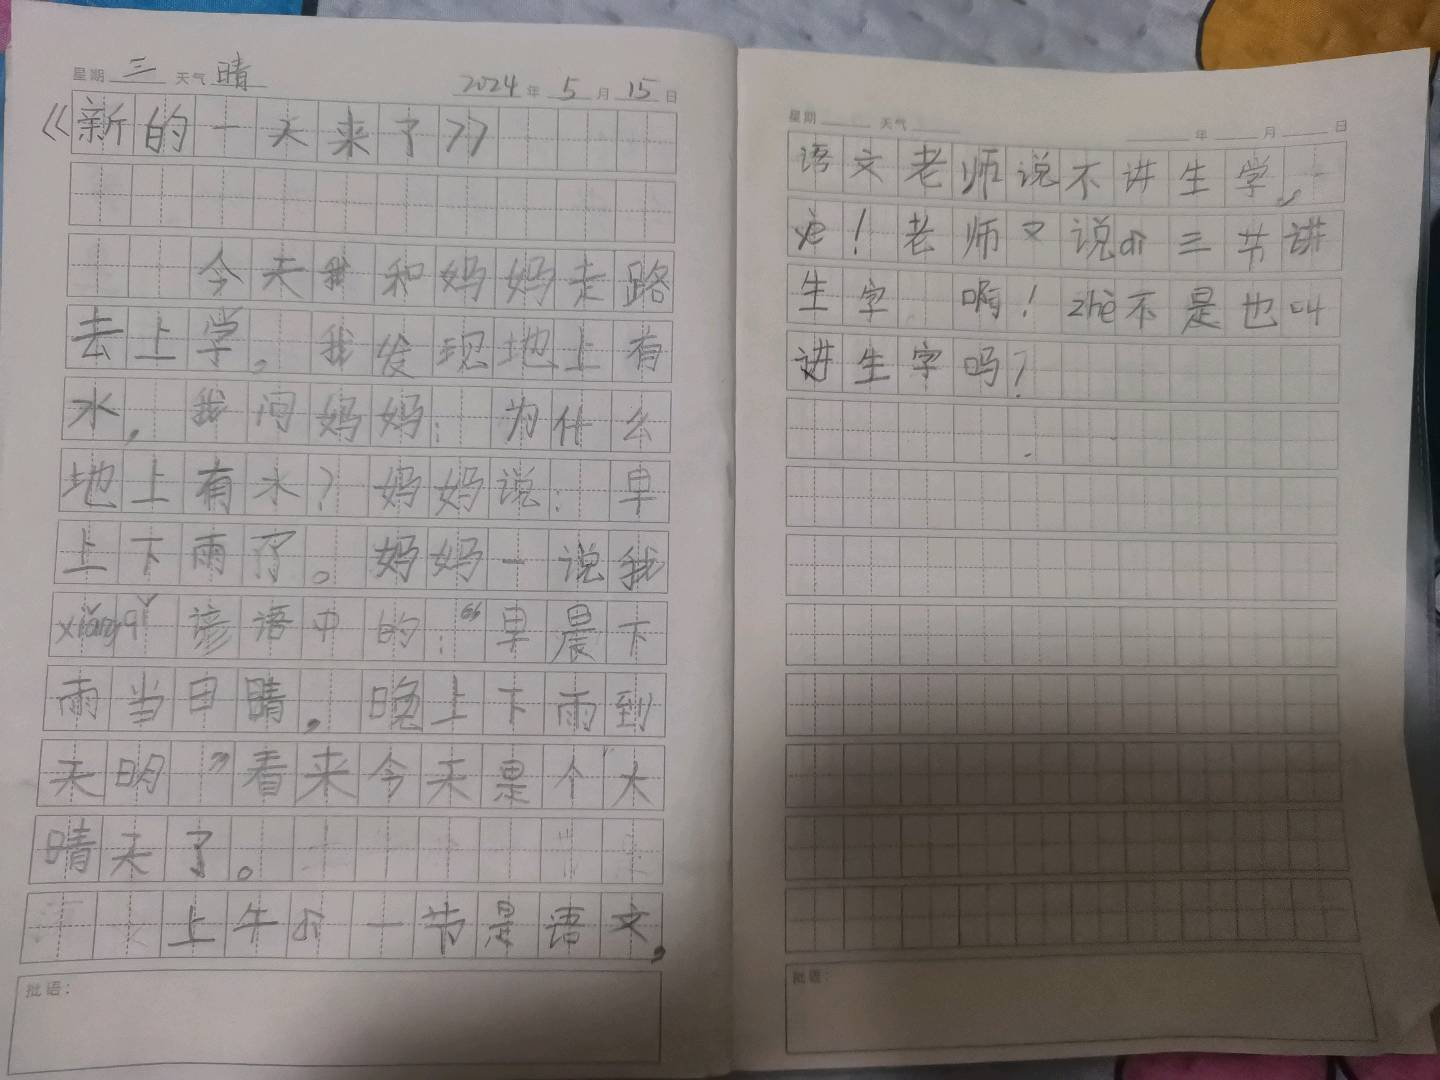 星期 三 天气 晴 2024 年 5 月 15 日
《新的一天来了》
今天我和妈妈走路
去上学。我发现地上有
水,我问妈妈:为什么
地上有水?妈妈说:早
上下雨了。妈妈一说我
xiǎngqǐ谚语中的:“早晨下
雨当日晴,晚上下雨到
天明”看来今天是个大
晴天了。
上午dì一节是语文,
批语:
星期 天气 年 月 日
语文老师说不讲生学,
!老师又说dì三节讲
生字 啊!zhè不是也叫
讲生字吗?
批语: